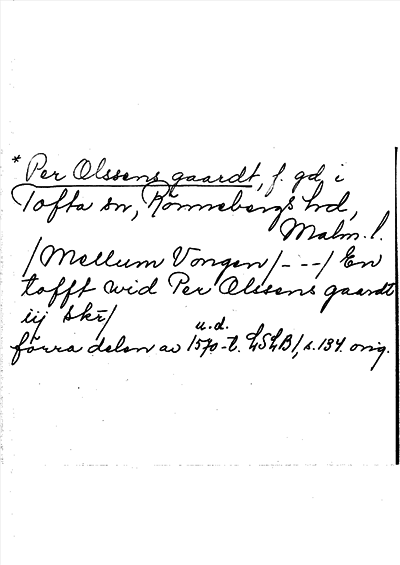 * Per Olssens gaardt, f. gd i
Tofta sn, Rönnebergs hd,
Malm. l.
/Mellum Vongen/---/En
tofft wid Per Olssens gaardt
iij skr/
u.d.
förra delen av 1570-t. LSLB/, s. 134. orig.